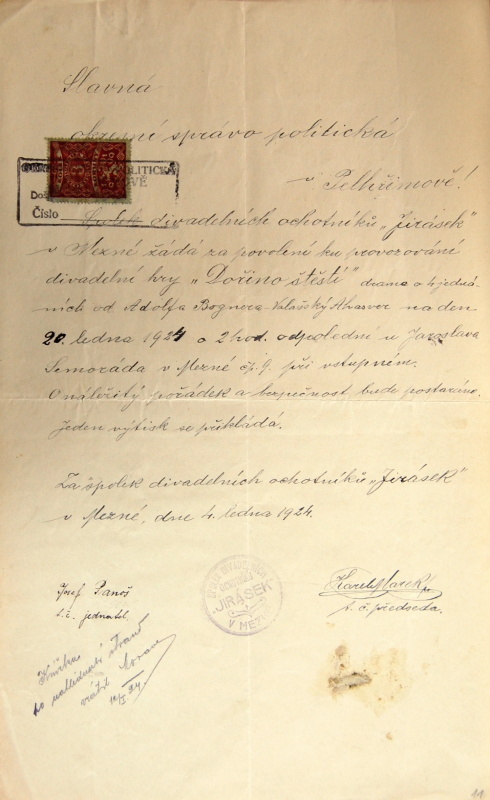 Slavná
okresní správo politická
POLITICKÁ
OVĚ
Číslo
v Pelhřimově!
Spolek divadelních ochotníků „Jirásek"
v Mezné žádá za povolení ku provozování
divadelní hry „Dořino štěstí" drama o 4 jedná-
ních od Adolfa Bognera-Valašský Ahasver na den
20. ledna 1924 o 2 hod. odpolední u Jaroslava
Semoráda v Mezné čp. 9. při vstupném.
O náležitý pořádek a bezpečnost bude postaráno.
Jeden výtisk se přikládá.
Za spolek divadelních ochotníků „Jirásek"
v Mezné, dne 4. ledna 1924.
Josef Panoš
t. č. jednatel.
Karel Marek
t. č. předseda.
SPOLEK DIVADELNÍCH
OCHOTNÍKŮ
"JIRÁSEK"
V MEZNÉ
Knížku
po nahlédnutí
vrátit
11